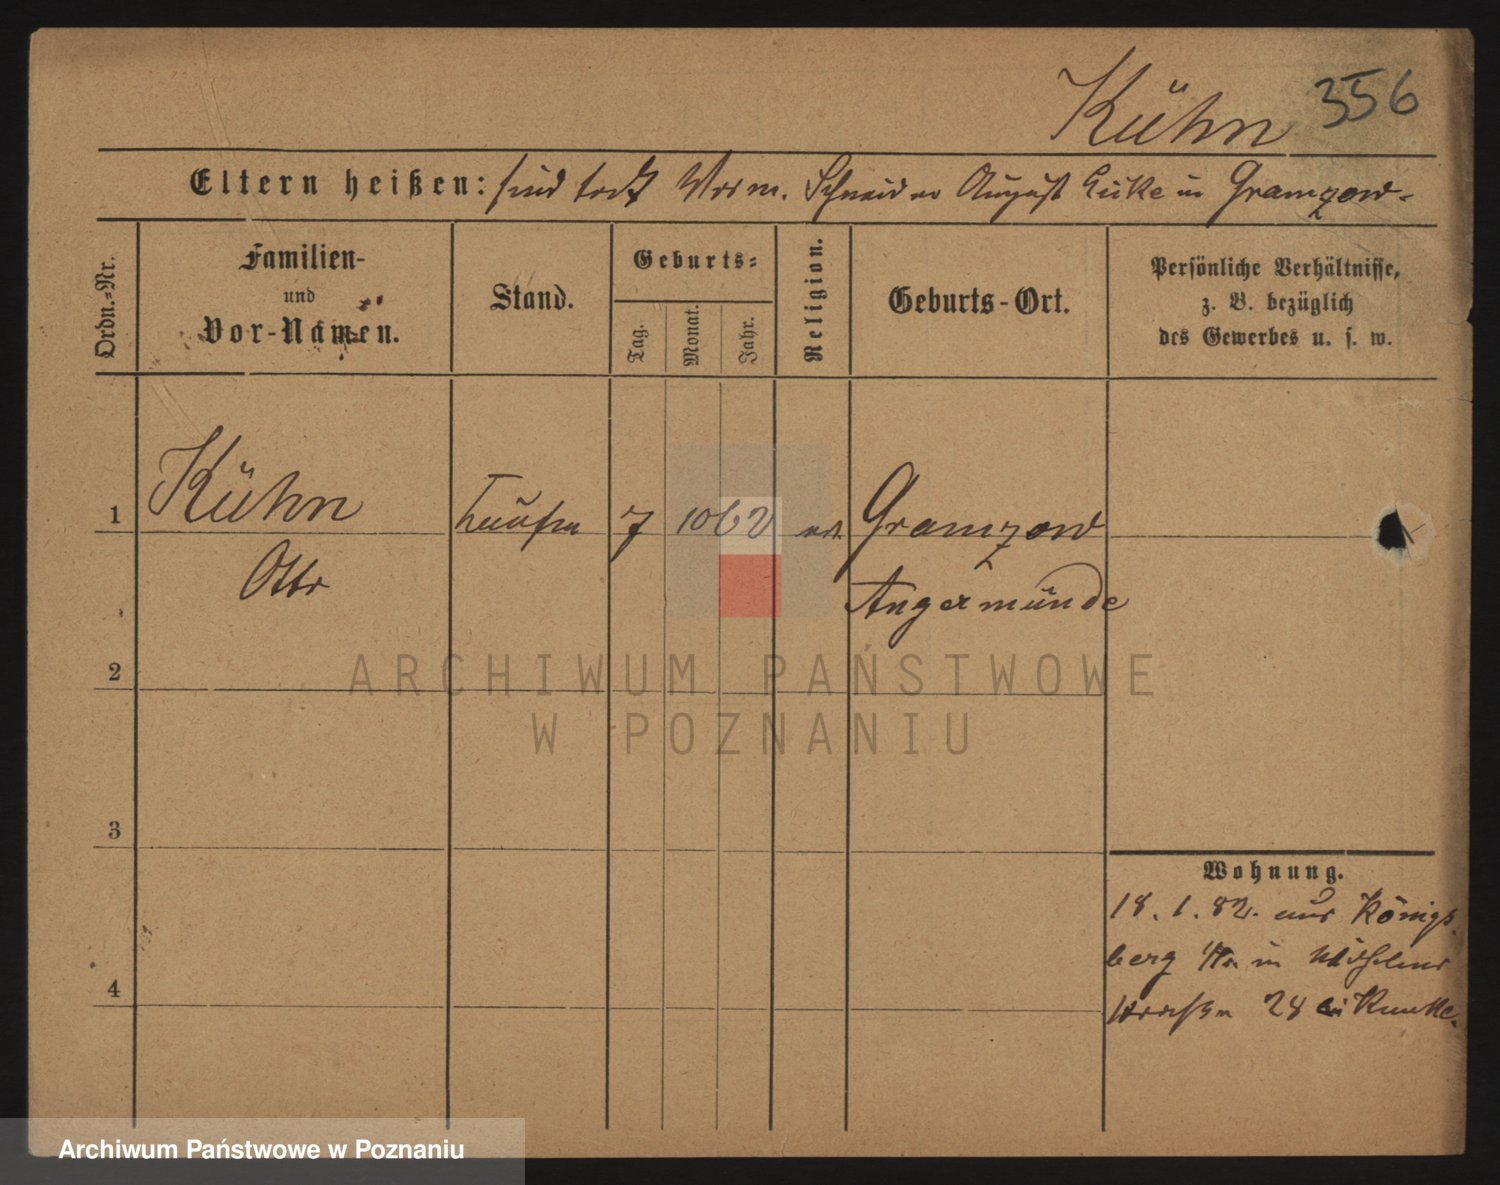 Kühn 356
Eltern heißen: sind todt Vorm. Schneider August Lüke in Gramzow.
Ordn.-Nr.
Familien-
und
Vor-Namen.
Stand.
Geburts-
Tag.
Monat.
Jahr.
Religion.
Geburts-Ort.
Persönliche Verhältnisse,
z. B. bezüglich
des Gewerbes u. s. w.
1 Kühn 7 10 62 ev. Gramzow
Otto Angermünde
2
ARCHIWUM PAŃSTWOWE
W POZNANIU
3
Wohnung.
18. 1. 82. aus Königs
berg in Wilhelms
4
straße 24 bei
Archiwum Państwowe w Poznaniu